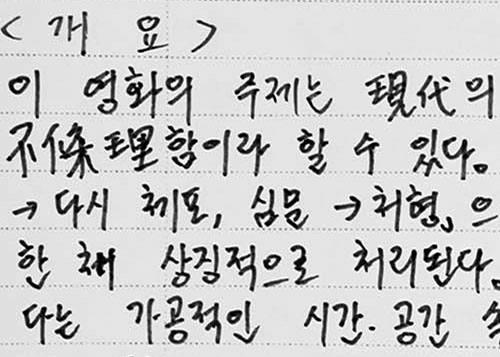 < 개 요 >
이 영화의 주제는 現代의
不條理함이라 할 수 있다.
→ 다시 체포, 심문 → 처형, 으
한 채 상징적으로 처리된다.
다는 가공적인 시간·공간 속